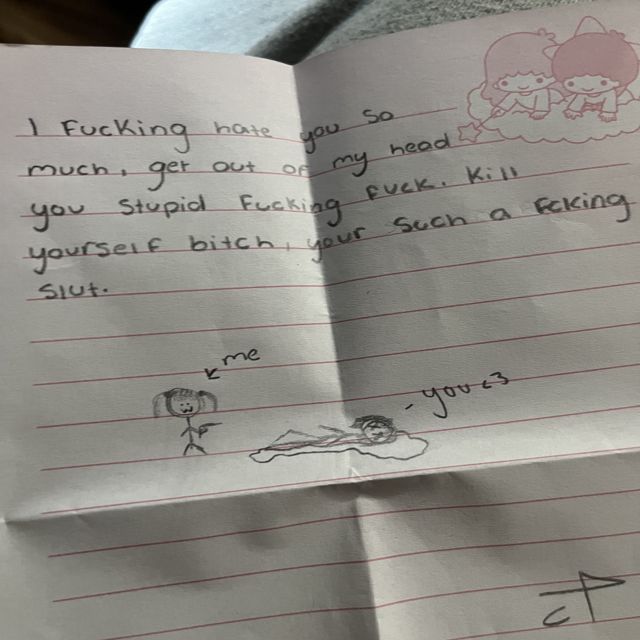 I Fucking hate you so
much, get out of my head
you stupid fucking fuck. Kill
yourself bitch, your such a fcking
slut.
me
- you <3